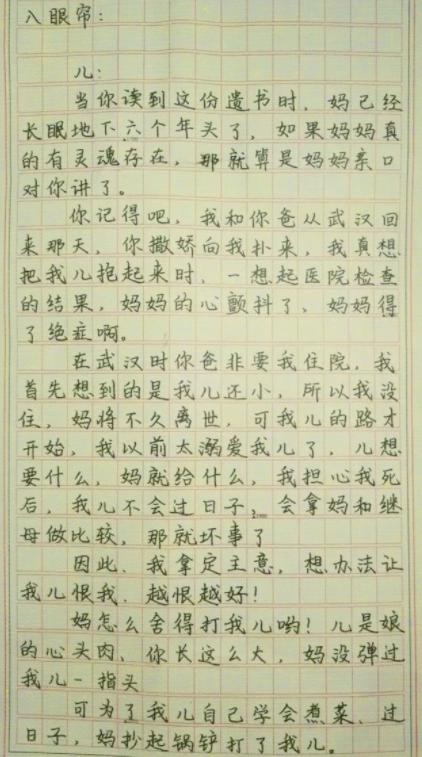 入眼帘:
儿:
当你读到这份遗书时，妈已经
长眠地下六个年头了，如果妈妈真
的有灵魂存在，那就算是妈妈亲口
对你讲了。
你记得吧，我和你爸从武汉回
来那天，你撒娇向我扑来，我真想
把我儿抱起来时，一想起医院检查
的结果，妈妈的心颤抖了，妈妈得
了绝症啊。
在武汉时你爸非要我住院，我
首先想到的是我儿还小，所以我没
住，妈将不久离世，可我儿的路才
开始，我以前太溺爱我儿了，儿想
要什么，妈就给什么，我担心我死
后，我儿不会过日子，会拿妈和继
母做比较，那就坏事了
因此、我拿定主意，想办法让
我儿恨我、越恨越好!
妈怎么舍得打我儿哟!儿是娘
的心头肉、你长这么大，妈没弹过
我儿一指头
可为了我儿自己学会煮菜、过
日子，妈抄起锅铲打了我儿。